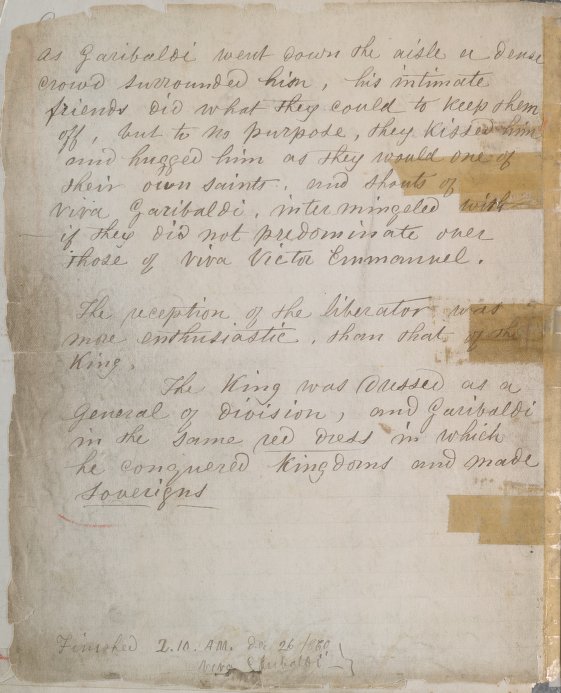 As Garibaldi went down the aisle a dense
crowd surrounded him, his intimate
friends did what they could to keep them
off, but to no purpose, they kissed him
and hugged him as they would one of
their own saints, and shouts of
Viva Garibaldi, intermingeled with
if they did not predominate over
those of Viva Victor Emmanuel.
The reception of the liberator was
more enthusiastic, than that of the
King.
The King was dressed as a
General of division, and Garibaldi
in the same red dress in which
he conquered Kingdoms and made
soverigns
Finished 2.10. AM. 26/860
Viva Garibaldi